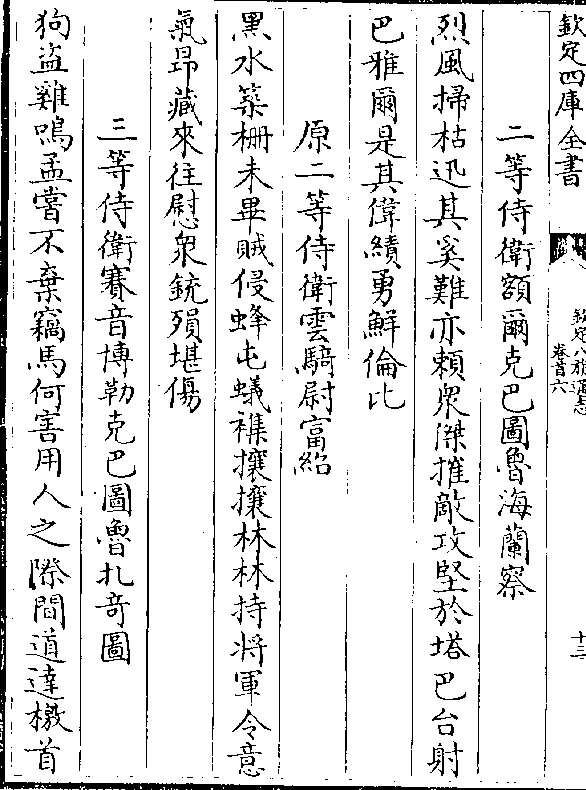 欽定四庫全書
欽定八旗通志
卷首六
十三
二等侍衛額爾克巴圖魯海蘭察
烈風掃枯迅其奚難亦頼衆傑摧敵攻堅於塔巴台射
巴雅爾是其偉績勇鮮倫比
原二等侍衛雲騎尉富紹
黑水築柵未畢賊侵蜂屯蟻襍攘攘林林持將軍令意
氣昻藏來往慰衆銃殞堪傷
三等侍衛賽音博勒克巴圖魯扎奇圖
狗盗雞鳴孟嘗不棄竊馬何害用人之際間道達檄首